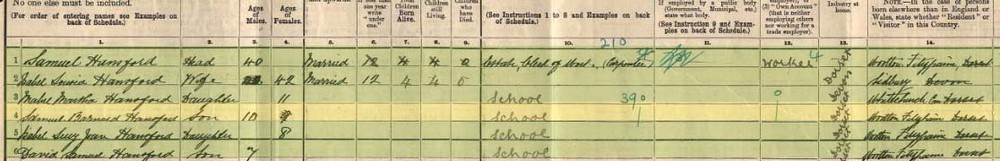 No one else must be included.
(For order of entering names see Examples on back of Schedule.)
Ages of Males.
Ages of Females.
less than one year write "under one."
Children Born Alive.
Children still Living.
Children who have Died.
(See Instructions 1 to 8 and Examples on back of Schedule.)
If employed by a public body (Government, Municipal, etc.) state what body.
(See Instruction 9 and Examples on back of Schedule.)
(2) "Own Account" (that is neither employing others nor working for a trade employer).
Industry at home.
NOTE.—In the case of persons born elsewhere than in England or Wales, state whether "Resident" or "Visitor" in this Country.
1. 2. 3. 4. 5. 6. 7. 8. 9. 10. 11. 12. 13. 14.
210
1 Samuel Hansford Head 40 Married 12 4 4 0 Estate, Clerk of Works (Carpenter) Worker 4 Wootton Fitzpaine Dorset
2 Isabel Hansford Wife 42 Married 12 4 4 0 Sidbury Devon
3 Mabel Martha Hansford Daughter 11 School 390 Whitchurch Can Dorset
4 Samuel Barnard Hansford Son 10 School Wootton Fitzpaine Dorset
5 Isabel Lucy Joan Hansford Daughter 8 School Wootton Fitzpaine Dorset
6 David Samuel Hansford Son 7 School Wootton Fitzpaine Dorset